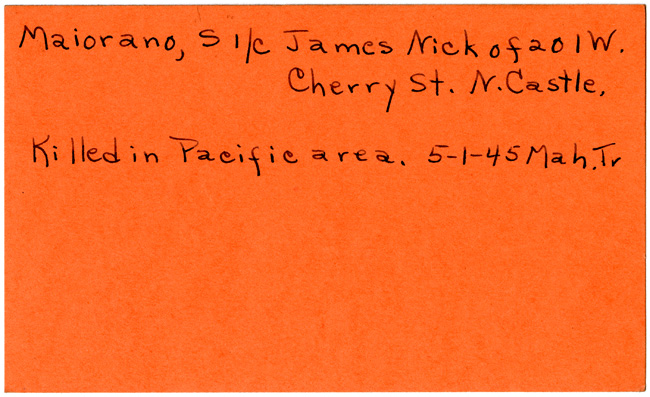 Maiorano, S 1/c James Nick of 201 W.
Cherry St. N. Castle,
Killed in Pacific area. 5-1-45 Mah. Tr